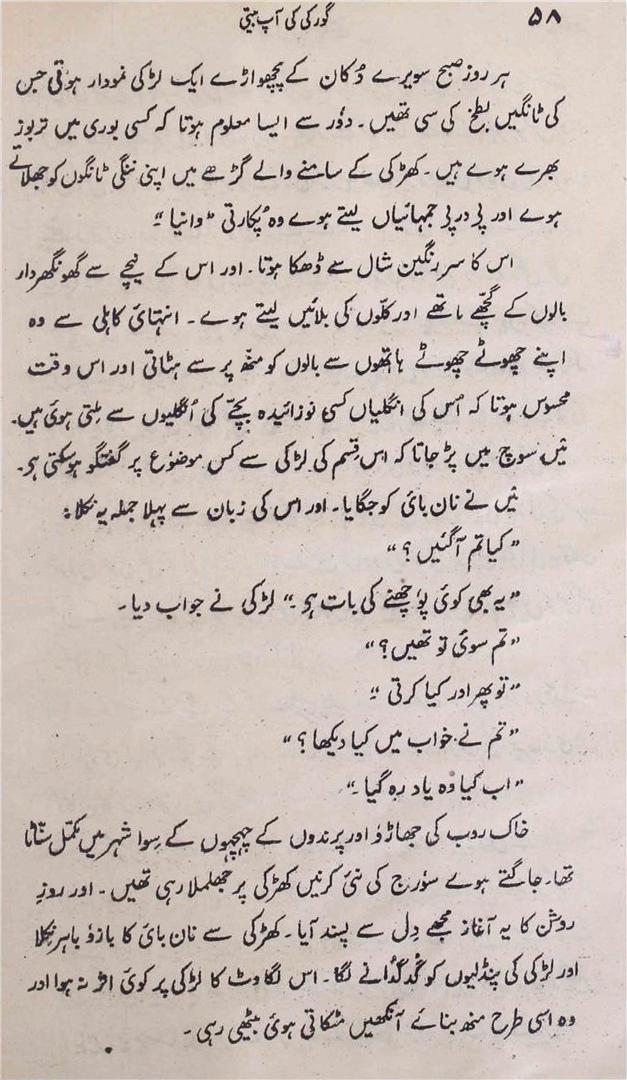 ۵۸
گورکی کی آپ بیتی
ہر روز صبح سویرے دُکان کے پچھواڑے ایک لڑکی نمودار ہوتی جس
کی ٹانگیں بطخ کی سی تھیں۔ دُور سے ایسا معلوم ہوتا کہ کسی بوری میں تربوز
بھرے ہوے ہیں۔ کھڑکی کے سامنے والے گڑھے میں اپنی ننگی ٹانگوں کو جھلاتے
ہوے اور پی در پی جمہائیاں لیتے ہوے وہ پُکارتی "وانیا"
اس کا سر رنگین شال سے ڈھکا ہوتا۔ اور اس کے نیچے سے گھونگھردار
بالوں کے گچھّے ماتھے اور کلّوں کی بلائیں لیتے ہوے۔ انتہائ کاہلی سے وہ
اپنے چھوٹے چھوٹے ہاتھوں سے بالوں کو منھ پر سے ہٹاتی اور اس وقت
محسوس ہوتا کہ اُس کی انگلیاں کسی نوزائیدہ بچّے کی اُنگلیوں سے ملتی ہوئ ہیں۔
میں سوچ میں پڑ جاتا کہ اس قِسم کی لڑکی سے کس موضوع پر گفتگو ہوسکتی ہو۔
میں نے نان بائ کو جگایا۔ اور اس کی زبان سے پہلا جملہ یہ نکلا:
"کیا تم آگئیں؟"
"یہ بھی کوئ پوٗچھنے کی بات ہو۔" لڑکی نے جواب دیا۔
"تم سوئ تو تھیں؟"
"تو پھر اور کیا کرتی"
"تم نے خواب میں کیا دیکھا؟"
"اب کیا وہ یاد رہ گیا۔"
خاک روب کی جھاڑو اور پرندوں کے چہچہوں کے سِوا شہر میں مکمّل سنّاٹا
تھا۔ جاگتے ہوے سوٗرج کی نئ کرنیں کھڑکی پر جھلملا رہی تھیں۔ اور روزِ
روشن کا یہ آغاز مجھے دِل سے پسند آیا۔ کھڑکی سے نان بائ کا بازوٗ باہر نِکلا
اور لڑکی کی پنڈلیوں کو گُدگُدانے لگا۔ اس لگاوٹ کا لڑکی پر کوئ اثر نہ ہوا اور
وہ اسی طرح منھ بنائے آنکھیں مٹکاتی ہوئ بیٹھی رہی۔